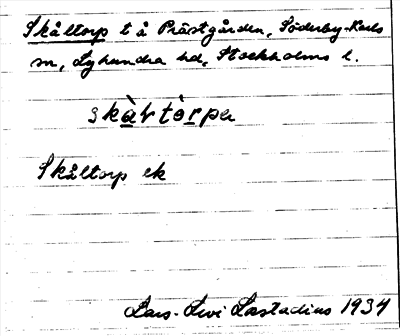 Skåltorp t å Prästgården, Söderby-Karls
sn, Lyhundra hd, Stockholms l.
skàɽtòrpa
Skåltorp ek
Lars-Levi Læstadius 1934